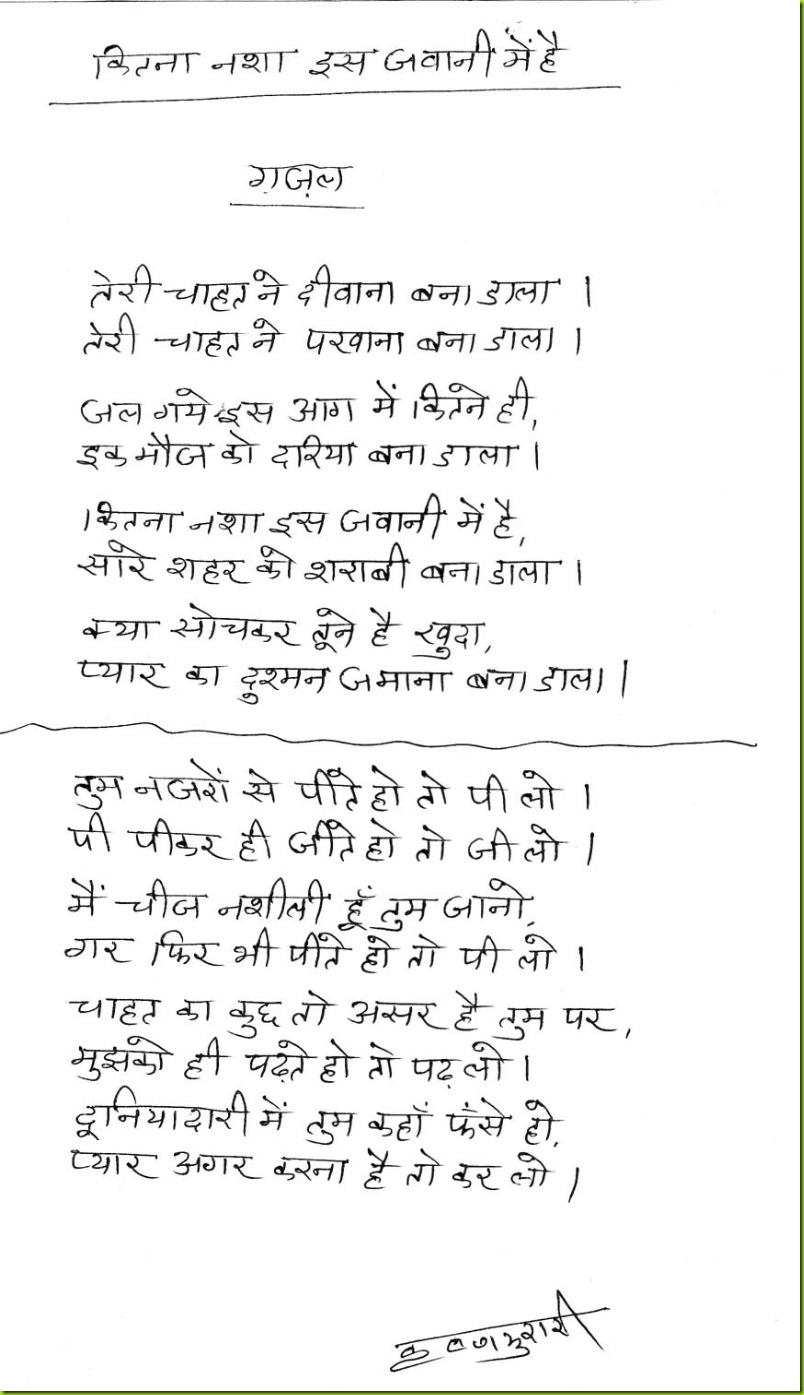 कितना नशा इस जवानी में है
ग़ज़ल
तेरी चाहत ने दीवाना बना डाला ।
तेरी चाहत ने परवाना बना डाला ।
जल गये इस आग में कितने ही,
इक मौज को दरिया बना डाला ।
कितना नशा इस जवानी में है,
सारे शहर को शराबी बना डाला ।
क्या सोचकर तूने है खुदा,
प्यार का दुश्मन जमाना बना डाला ।
तुम नजरों से पीते हो तो पी लो ।
पी पीकर ही जीते हो तो जी लो ।
मैं चीज नशीली हूँ तुम जानो,
गर फिर भी पीते हो तो पी लो ।
चाहत का कुछ तो असर है तुम पर,
मुझको ही पढ़ते हो तो पढ़ लो ।
दूनियादारी में तुम कहाँ फंसे हो,
प्यार अगर करना है तो कर लो ।
कृष्णमुरारी